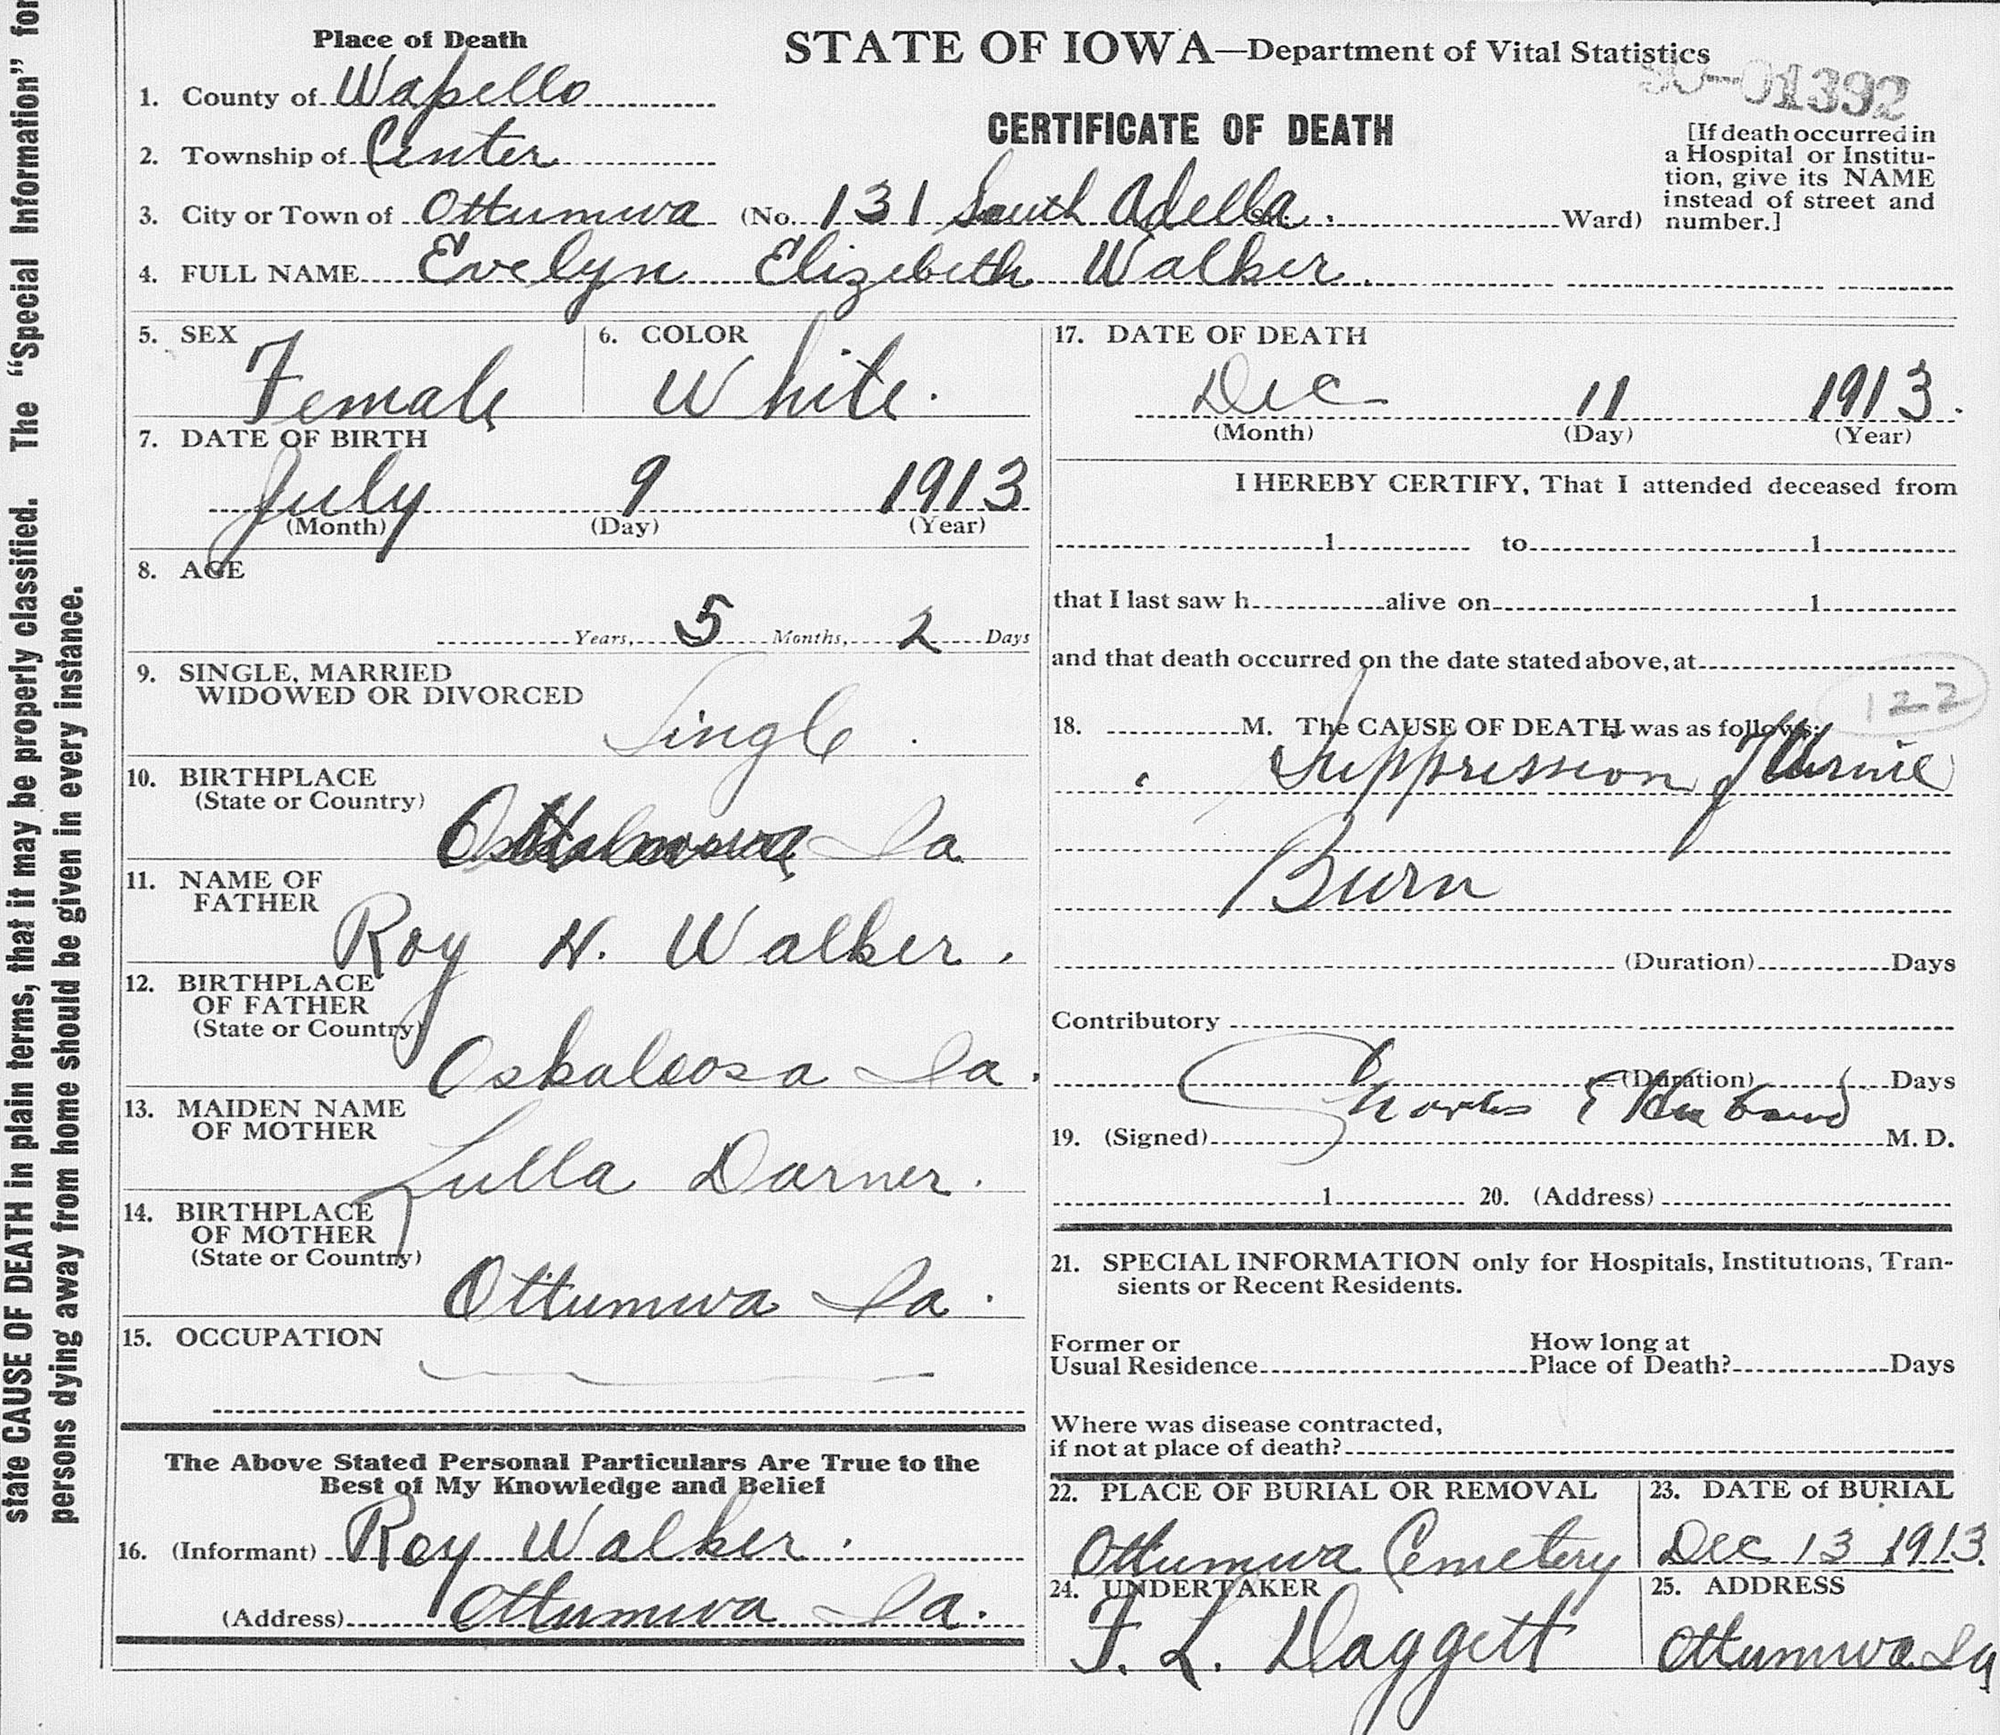 state CAUSE OF DEATH in plain terms, that it may be properly classified. The "Special Information" for
persons dying away from home should be given in every instance.
Place of Death
STATE OF IOWA—Department of Vital Statistics
-01392
1. County of Wapello
CERTIFICATE OF DEATH
[If death occurred in
a Hospital or Institu-
tion, give its NAME
instead of street and
number.]
2. Township of Center
3. City or Town of Ottumwa (No. 131 South Adella. Ward)
4. FULL NAME Evelyn Elizebeth Walker.
5. SEX Female
6. COLOR White.
7. DATE OF BIRTH
July 9 1913
(Month) (Day) (Year)
8. AGE
Years, 5 Months, 2 Days
9. SINGLE, MARRIED
WIDOWED OR DIVORCED
Single.
10. BIRTHPLACE
(State or Country)
Ia
11. NAME OF
FATHER
Roy H. Walker.
12. BIRTHPLACE
OF FATHER
(State or Country)
Oskaloosa Ia.
13. MAIDEN NAME
OF MOTHER
Lulla Darner.
14. BIRTHPLACE
OF MOTHER
(State or Country)
Ottumwa Ia.
15. OCCUPATION
The Above Stated Personal Particulars Are True to the
Best of My Knowledge and Belief
16. (Informant) Roy Walker.
(Address) Ottumwa Ia.
17. DATE OF DEATH
Dec 11 1913.
(Month) (Day) (Year)
I HEREBY CERTIFY, That I attended deceased from
1 to 1
that I last saw h alive on 1
and that death occurred on the date stated above, at
122
18. M. The CAUSE OF DEATH was as follows:
Suppression of Urine
Burn
(Duration) Days
Contributory
(Duration) Days
Charles E
19. (Signed) M. D.
1 20. (Address)
21. SPECIAL INFORMATION only for Hospitals, Institutions, Tran-
sients or Recent Residents.
Former or
Usual Residence
How long at
Place of Death? Days
Where was disease contracted,
if not at place of death?
22. PLACE OF BURIAL OR REMOVAL
Ottumwa Cemetery
23. DATE of BURIAL
Dec 13 1913.
24. UNDERTAKER
F. L. Daggett
25. ADDRESS
Ottumwa Ia